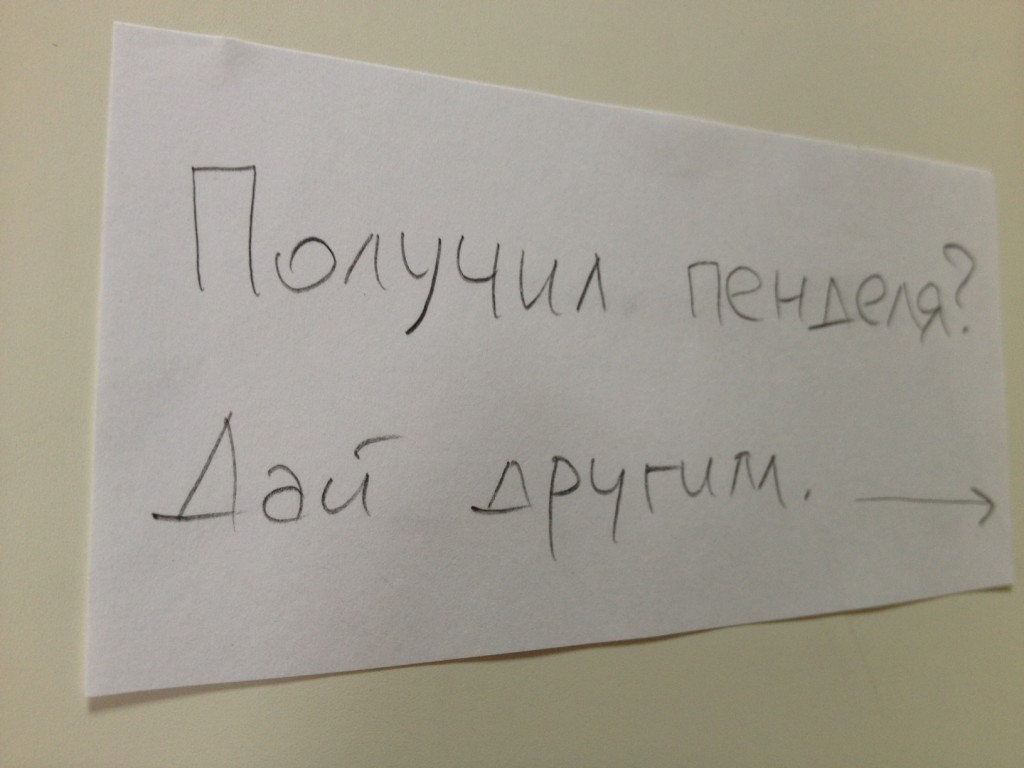 Получил пенделя?
Дай другим. →